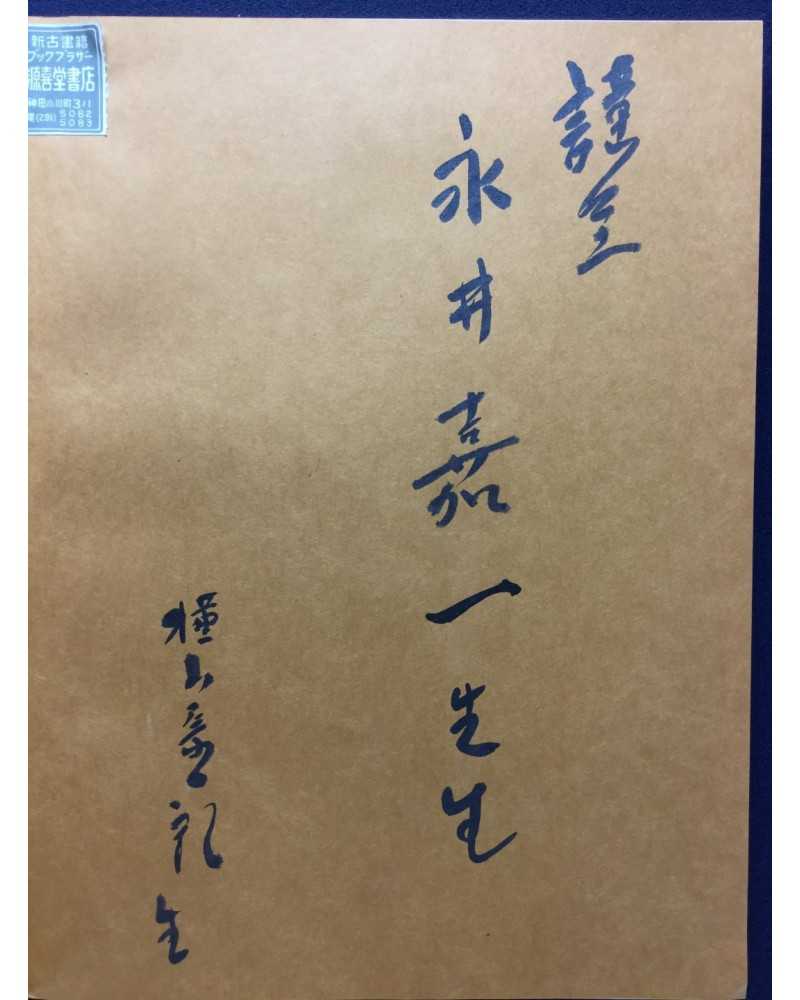 新古書籍
ブックブラザー
源喜堂書店
神田小川町3ノ1
電(291) 5082
5083
謹呈
永井嘉一先生
横山